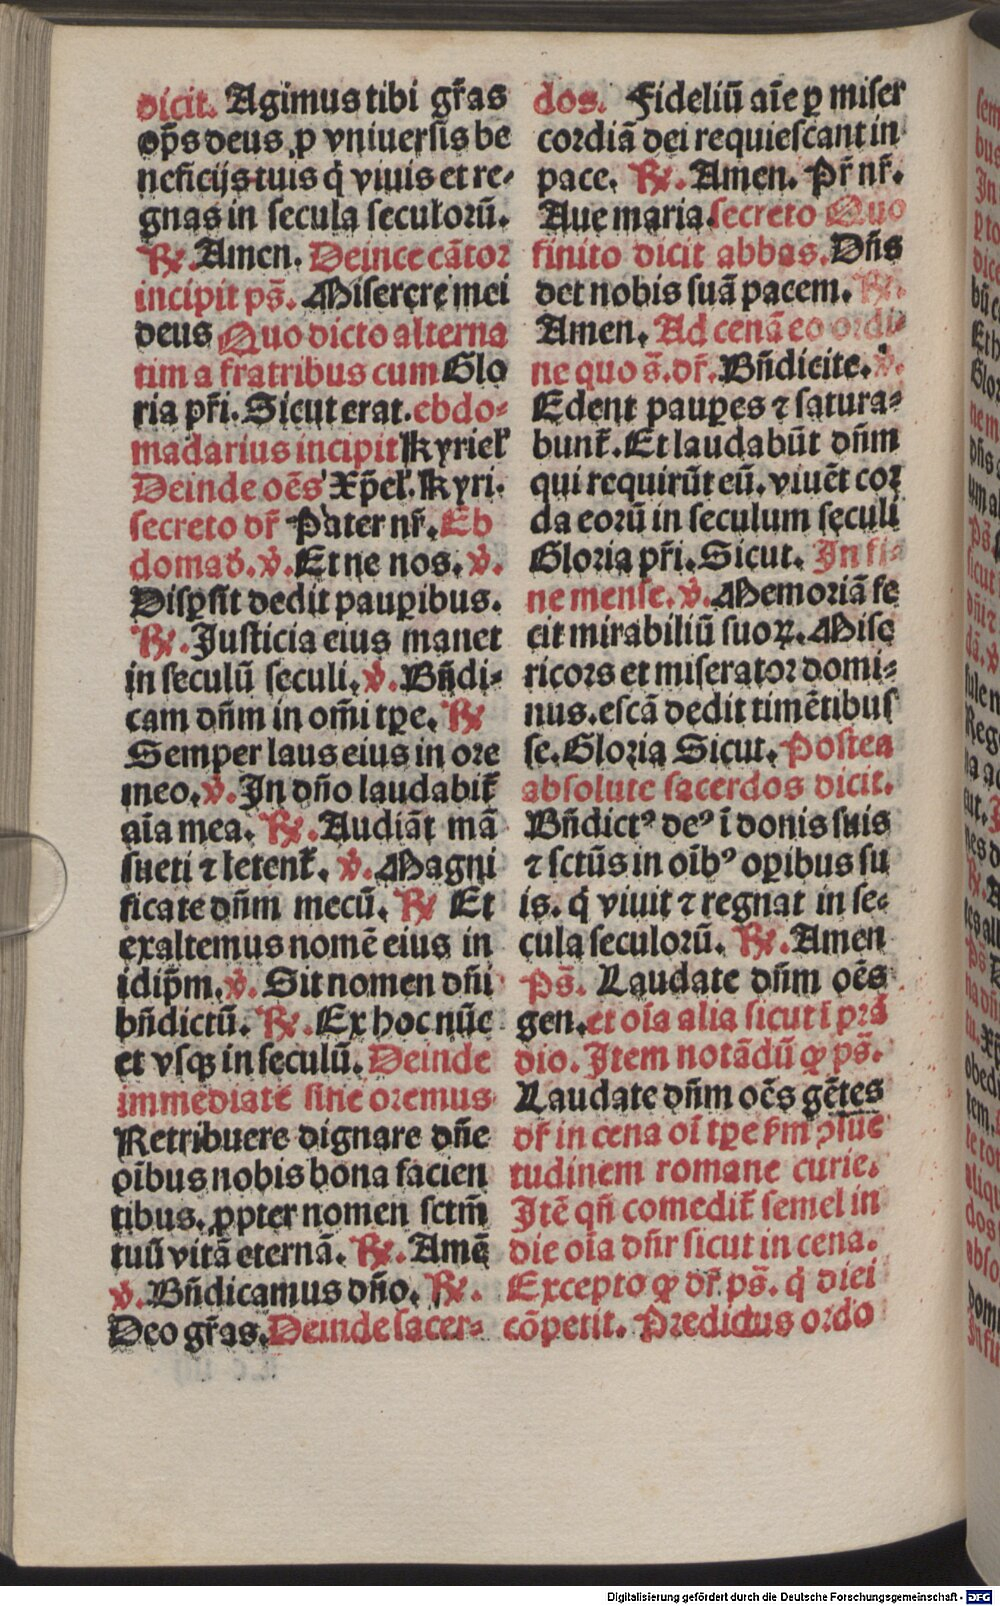 dicit. Agimus tibi gr̄as
op̄s deus ꝓ vniuersis be
neficijs tuis q̇ viuis et re-
gnas in secula seculorū.
℞. Amen. Deince cātor
incipit ps̄. Miserere mei
deus Quo dicto alterna
tim a fratribus cum Glo
ria pr̄i. Sicut erat. ebdo-
madarius incipit Kyriel̛
Deinde oēs Xp̄el̛. Kyri.
secreto dr̄ Pater nr̄. Eb
domad̛. ℣. Et ne nos. ℣.
Disꝑsit dedit pauꝑibus.
℞. Justicia eius manet
in seculū seculi. ℣. Bn̄di-
cam dn̄m in om̄i tꝑe. ℞
Semper laus eius in ore
meo. ℣. In dn̄o laudabit̄
aīa mea. ℞. Audiāt mā
sueti ⁊ letent̄. ℣. Magni
ficate dn̄m mecū. ℞ Et
exaltemus nomē eius in
idip̄m. ℣. Sit nomen dn̄i
bn̄dictū. ℞. Ex hoc nūc
et vsqꝫ in seculū. Deinde
immediate sine oremus
Retribuere dignare dn̄e
oībus nobis bona facien
tibus. ꝓpter nomen sctm̄
tuū vitā eternā. ℞. Amē
℣. Bn̄dicamus dn̄o. ℞.
Deo gr̄as. Deinde sacer-
dos. Fideliū aīe ꝑ miser
cordiā dei requiescant in
pace. ℞. Amen. Pr̄ nr̄.
Aue maria. secreto Quo
finito dicit abbas. Dn̄s
det nobis suā pacem. ℞.
Amen. Ad cenā eo ordi-
ne quo s̄. dr̄. Bn̄dicite. ℣.
Edent pauꝑes ⁊ satura-
bunt̄. Et laudabūt dn̄m
qui requirūt eū. viuēt cor
da eorū in seculum seculi
Gloria pr̄i. Sicut. In fi-
ne mense. ℣. Memoriā fe
cit mirabiliū suoꝝ. Mise
ricors et miserator domi-
nus. escā dedit timētibus
se. Gloria Sicut. Postea
absolute sacerdos dicit.
Bn̄dictꝰ deꝰ ī donis suis
⁊ sctūs in oībꝰ oꝑibus su
is. q̇ viuit ⁊ regnat in se-
cula seculorū. ℞. Amen
Ps̄. Laudate dn̄m oēs
gen. et oīa alia sicut ī prā
dio. Item notādū ꝙ ps̄.
Laudate dn̄m oēs gētes
dr̄ in cena oī tꝑe ẜm ꝯsue
tudinem romane curie.
Itē qn̄ comedit̄ semel in
die oīa dn̄r sicut in cena.
Excepto ꝙ dr̄ ps̄. q̇ diei
cōpetit. Predictus ordo
Digitalisierung gefördert durch die Deutsche Forschungsgemeinschaft - DFG